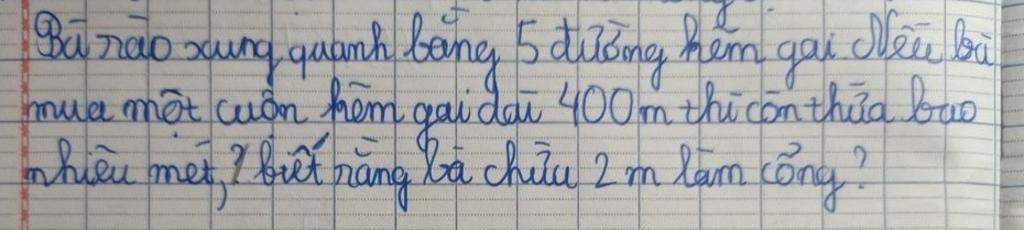 Bà rào xung quanh bằng 5 đường kẽm gai Nếu bà
mua một cuộn kẽm gai dài 400m thì còn thừa bao
nhiêu mét,? biết rằng bà chừa 2 m làm cổng?